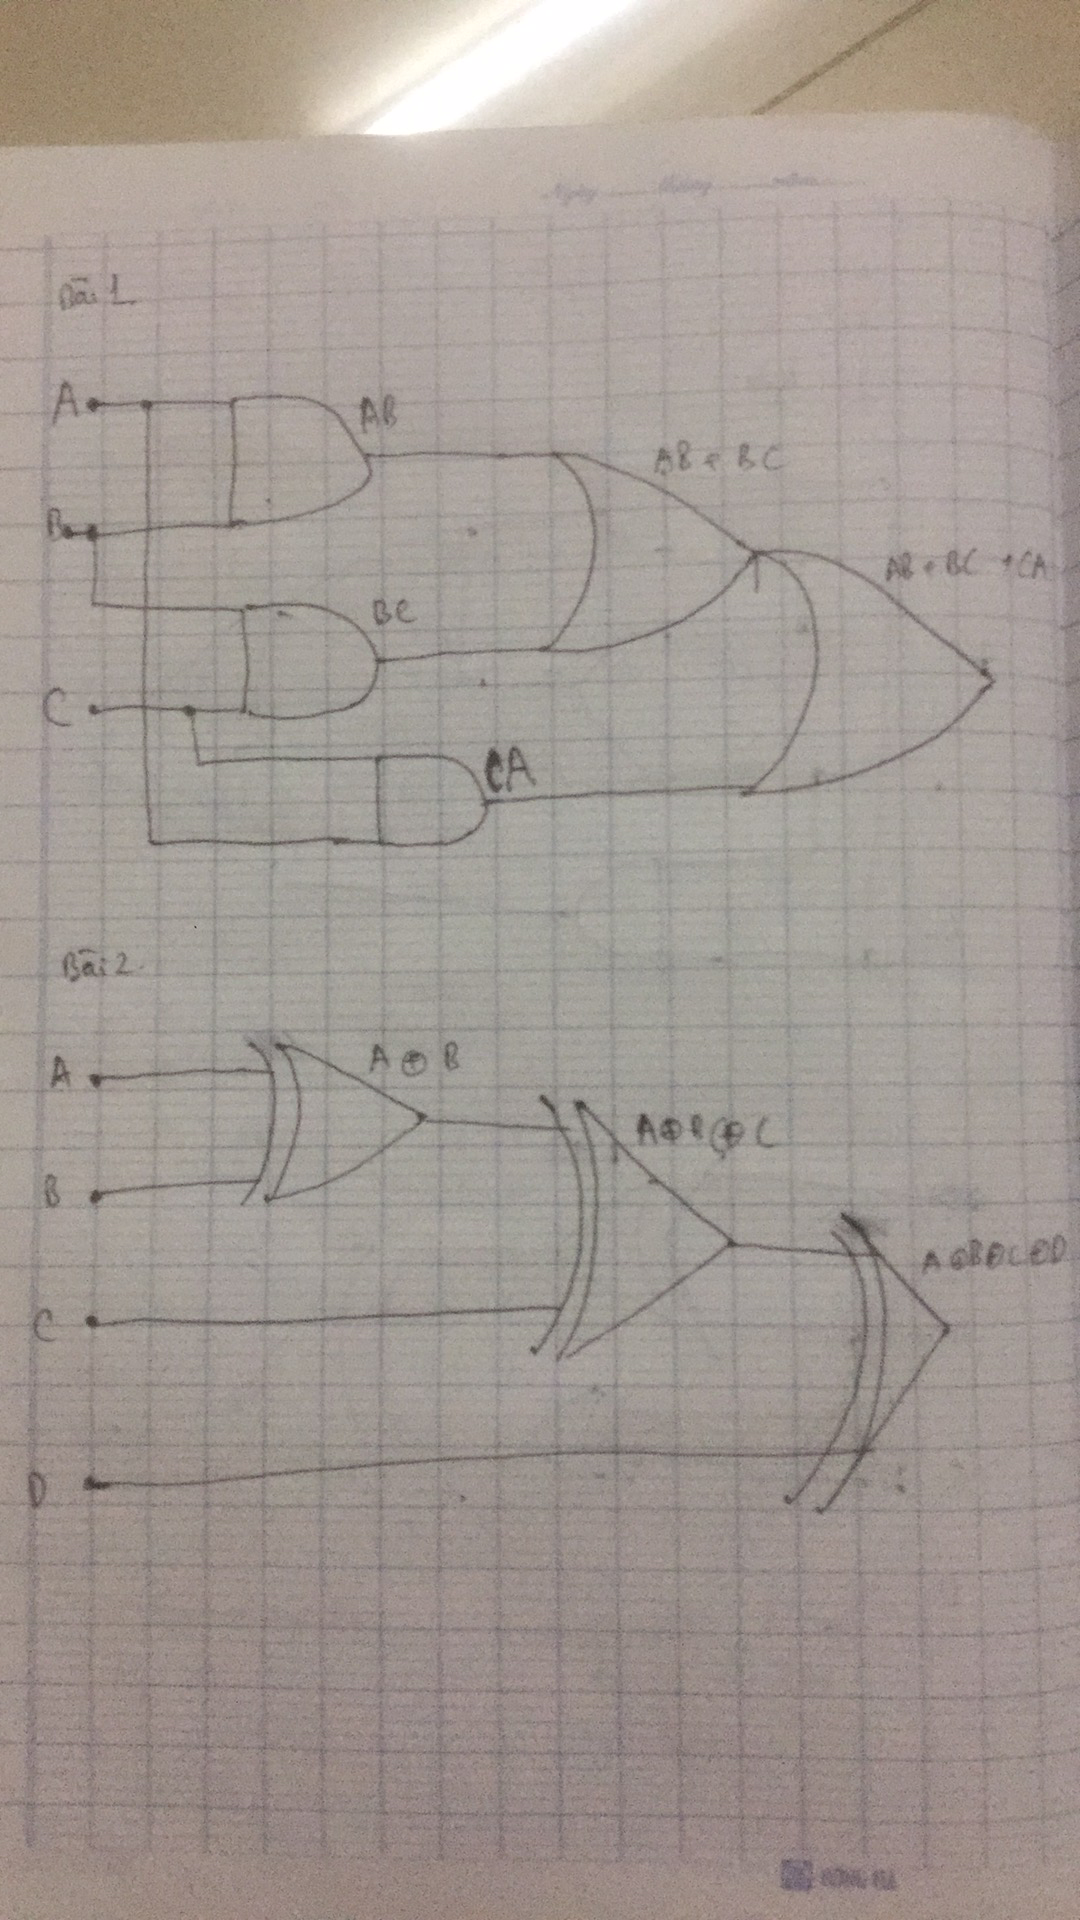 Ngày Tháng Năm
Bài 1
A
AB
AB + BC
B
AB + BC + CA
BC
C
CA
Bài 2
A
A ⊕ B
A⊕B⊕C
B
A⊕B⊕C⊕D
C
D